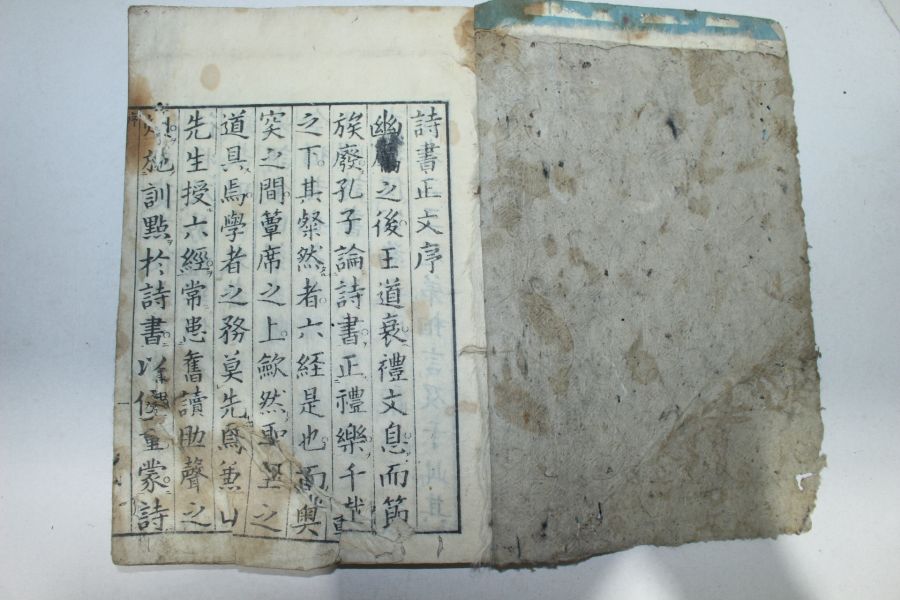 詩書正文序
幽厲之後王道衰禮文息而節
族廢孔子論詩書正禮樂千載
之下其粲然者六経是也而奧
突之間蕈席之上歛然聖王之
道具焉學者之務莫先焉兼山
先生授六經常患舊讀助聲之
施訓點於詩書以便童蒙詩